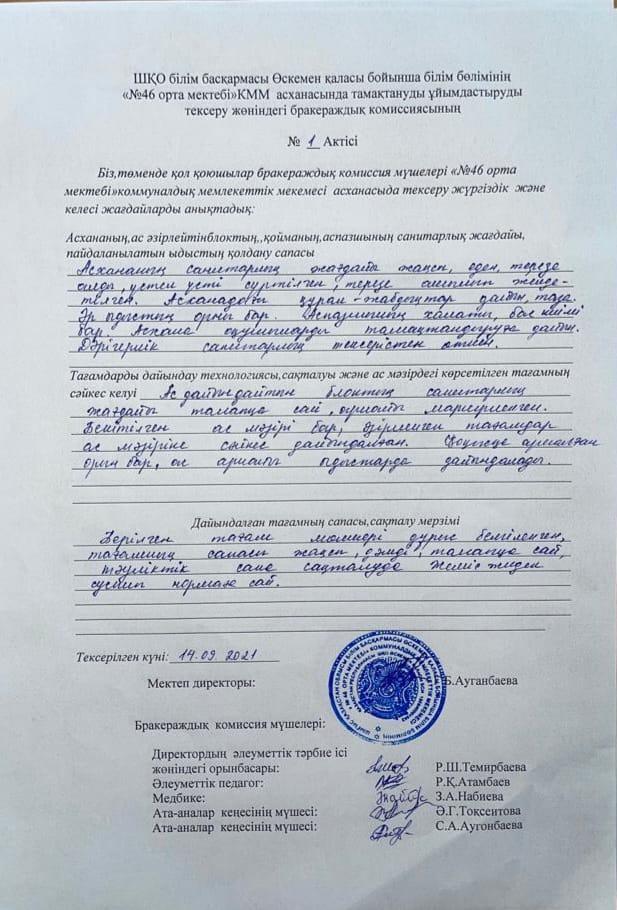 ШҚО білім басқармасы Өскемен қаласы бойынша білім бөлімінің
«№46 орта мектебі»КММ асханасында тамақтануды ұйымдастыруды
тексеру жөніндегі бракераждық комиссиясының
№ 1 Актісі
Біз,төменде қол қоюшылар бракераждық комиссия мүшелері «№46 орта
мектебі»коммуналдық мемлекеттік мекемесі асханасыда тексеру жүргіздік және
келесі жағдайларды анықтадық:
Асхананың,ас әзірлейтінблоктың,,қойманың,аспазшының санитарлық жағдайы,
пайдаланылатын ыдыстың қолдану сапасы
Асхананың санитарлық жағдайы жақсы, еден, терезе
алды, үстел үсті сүртілген, терезе
Асханадағы құрал-жабдықтар дайын, таза.
Әр ыдыстың орны бар. Аспазшының халаты, бас киімі
бар. Асхана оқушыларды тамақтандыруға дайын.
Дәрігерлік санитарлық тексерістен өткен.
Тағамдарды дайындау технологиясы,сақталуы және ас мәзірдегі көрсетілген тағамның
сәйкес келуі Ас дайындайтын блоктың санитарлық
жағдайы талапқа сай, маркирленген.
Бекітілген ас мәзірі бар, әзірленген тағамдар
ас мәзіріне сәйкес дайындалған. арналған
орын бар, ас арнайы ыдыстарда дайындалады.
Дайындалған тағамның сапасы,сақталу мерзімі
Берілген тағам мөлшері дұрыс белгіленген,
тағамның сапасы жақсы, дәмді, талапқа сай,
тәуліктік сақталуда Жеміс жиден
нормаға сай.
Тексерілген күні: 14.09.2021
Мектеп директоры: Б.Ауганбаева
Бракераждық комиссия мүшелері:
Директордың әлеуметтік тәрбие ісі
жөніндегі орынбасары: Р.Ш.Темирбаева
Әлеуметтік педагог: Р.Қ.Атамбаев
Медбике: З.А.Набиева
Ата-аналар кеңесінің мүшесі: Ә.Г.Токсеитова
Ата-аналар кеңесінің мүшесі: С.А.Аугонбаева